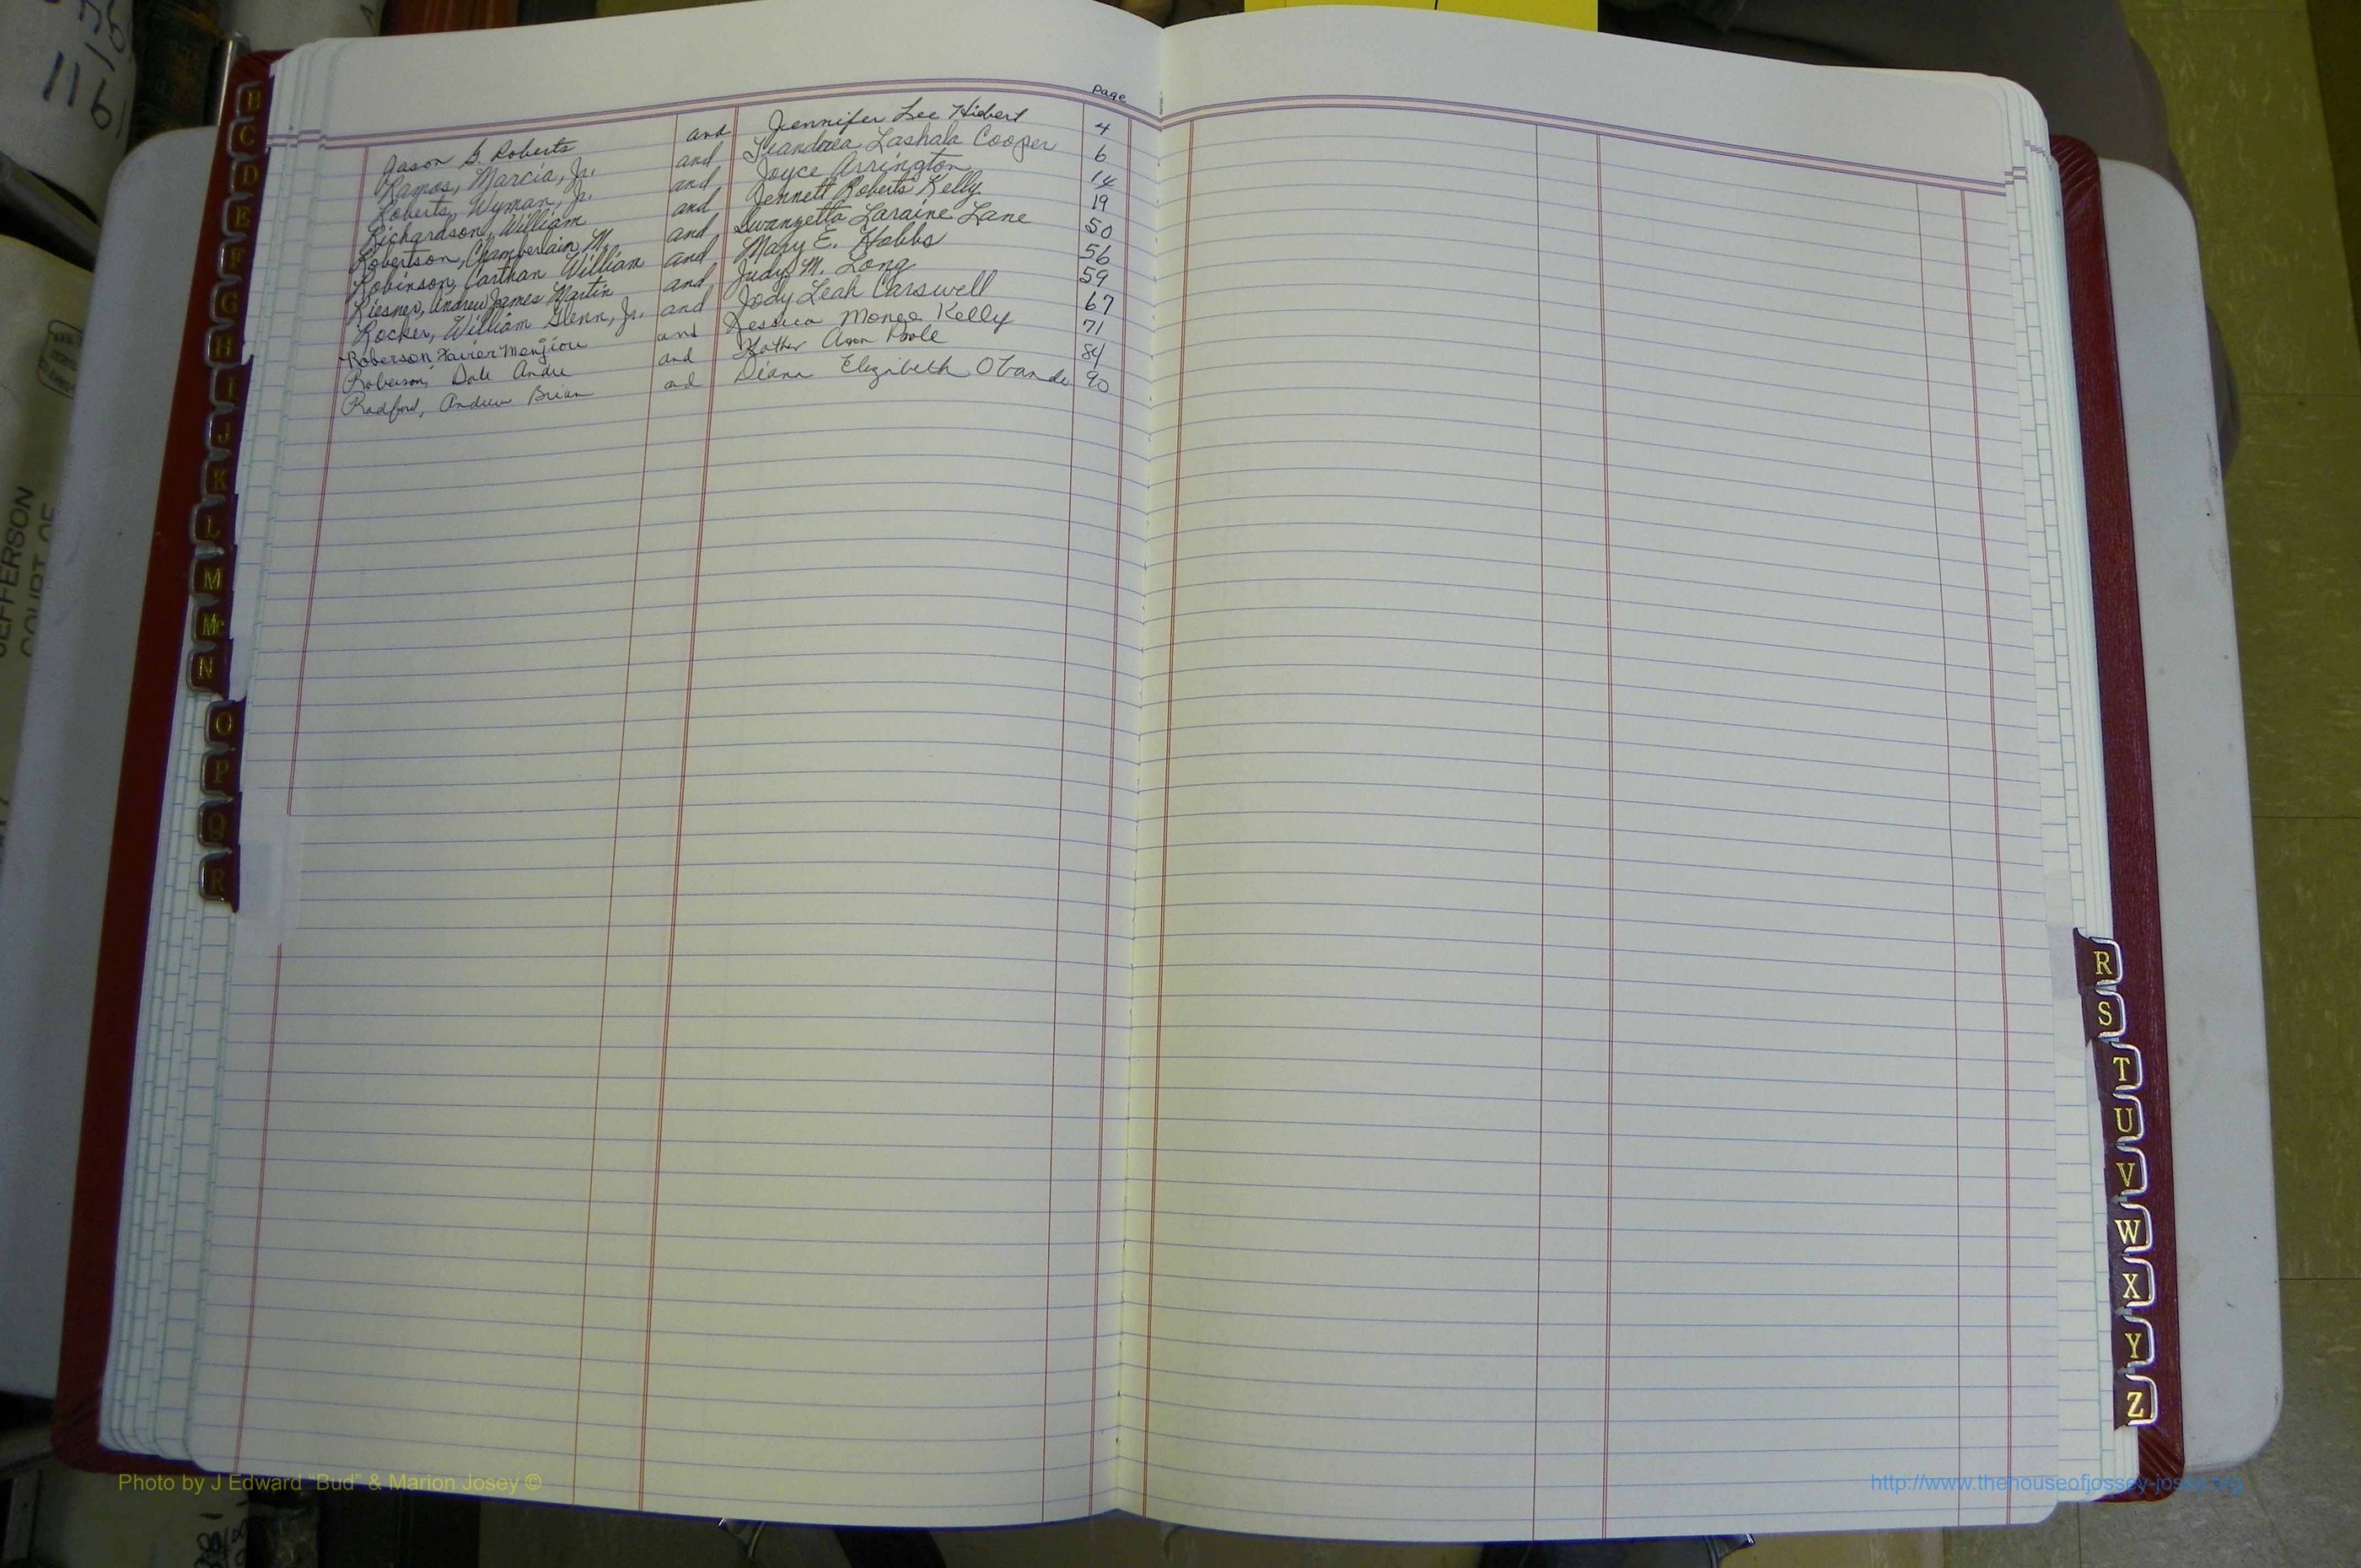 Page
Jason B. Roberts and Jennifer Lee Hiebert 4
Ramos, Marcia, Jr. and Lashala Cooper 6
Roberts, Wyman, Jr. and Joyce Arrington 14
Richardson, William and Jennett Roberts Kelly 19
Robertson, Chamberlain M. and Swanzetta Laraine Lane 50
Robinson, Carthan William and Mary E. Hobbs 56
Riesner, Andrew James Martin and Judy M. Long 59
Rocker, William Glenn, Jr. and Jody Leah Carswell 67
Roberson Xavier and Jessica Monee Kelly 71
Roberson, Dale Andre and Ann Poole 84
Radford, Andrew Brian and Diana Elizabeth 90
B
C
D
E
F
G
H
I
J
K
L
M
Mc
N
O
P
Q
R
R
S
T
U
V
W
X
Y
Z
1161
JEFFERSON
COURT OF
Photo by J Edward "Bud" & Marion Josey ©
http://www.thehouseofjossey-josey.org